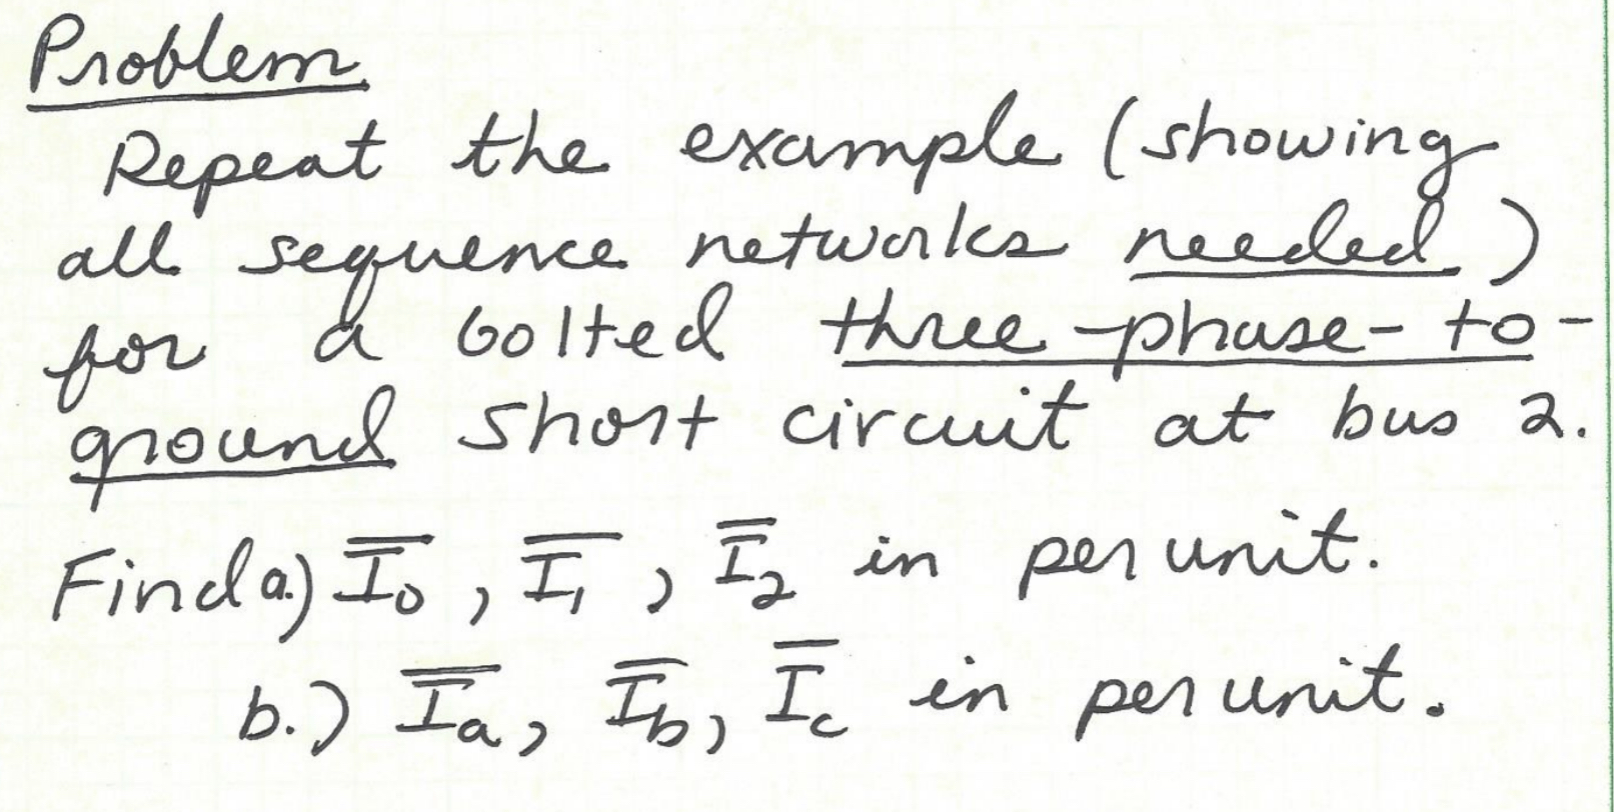 Problem
Repeat the example (showing
all sequence networks needed)
for a bolted three-phase-to-
ground short circuit at bus 2.
Find a.) I̅₀, I̅₁, I̅₂ in per unit.
b.) I̅a, I̅b, I̅c in per unit.